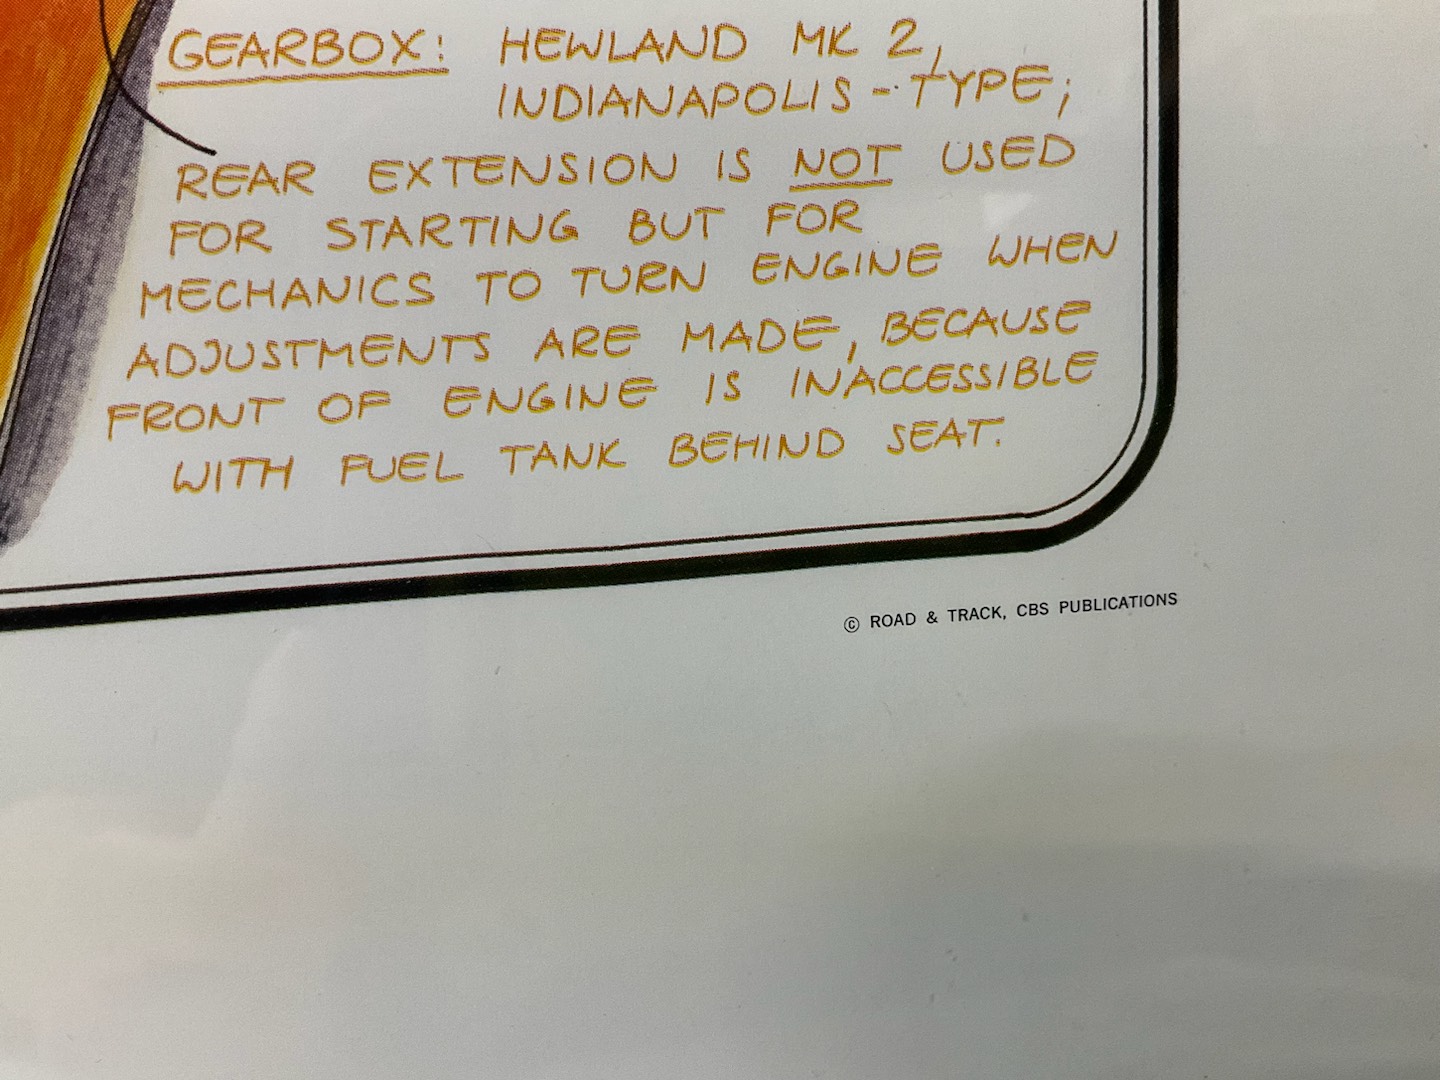 GEARBOX: HEWLAND MK 2,
INDIANAPOLIS-TYPE;
REAR EXTENSION IS NOT USED
FOR STARTING BUT FOR
MECHANICS TO TURN ENGINE WHEN
ADJUSTMENTS ARE MADE, BECAUSE
FRONT OF ENGINE IS INACCESSIBLE
WITH FUEL TANK BEHIND SEAT.
© ROAD & TRACK, CBS PUBLICATIONS